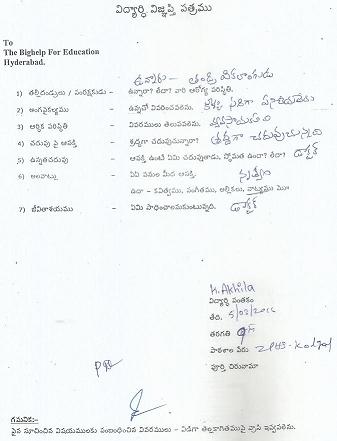 విద్యార్థి విజ్ఞప్తి పత్రము
To
The Bighelp For Education
Hyderabad.
ఉన్నారు - తండ్రి వికలాంగుడు
1) తల్లిదండ్రులు / సంరక్షకుడు - ఉన్నారా? లేదా? వారి ఆరోగ్య పరిస్థితి.
2) అంగవైకల్యము - ఉన్నచో వివరించవలెను. సరిగా
3) ఆర్థిక పరిస్థితి - వివరములు తెలుపవలెను. వ్యవసాయం
4) చదువు పై ఆసక్తి - శ్రద్ధగా చదువుచున్నారా? శ్రద్ధగా చదువుచున్నది
5) ఉన్నతచదువు - ఆసక్తి ఉంటే ఏమి చదువుతాడు, స్తోమత ఉందా? లేదా? డాక్టర్
6) అలవాట్లు - ఏఏ పనుల మీద ఆసక్తి. నృత్యం
ఉదా - కవిత్వము, సంగీతము, అల్లికలు, నాట్యము మొ
7) జీవితాశయము - ఏమి సాధించాలనుకుంటున్నది. డాక్టర్
K. Akhila
విద్యార్థి సంతకం
తేది.
తరగతి
పాఠశాల పేరు ZPHS-
పూర్తి చిరునామా
గమనిక:-
పైన సూచించిన విషయములకు సంబంధించిన వివరములు - విడిగా తెల్లకాగితముపై వ్రాసి ఇవ్వవలెను.